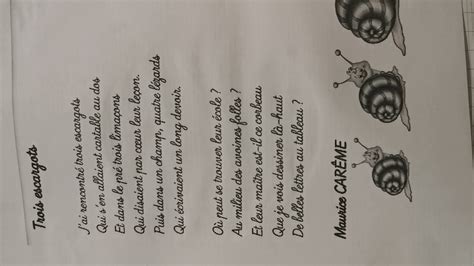 Trois escargots
J'ai rencontré trois escargots
Qui s'en allaient cartable au dos
Et dans le pré trois limaçons
Qui disaient par cœur leur leçon.
Puis dans un champ, quatre lézards
Qui écrivaient un long devoir.
Où peut se trouver leur école ?
Au milieu des avoines folles ?
Et leur maître est-il ce corbeau
Que je vois dessiner là-haut
De belles lettres au tableau ?
Maurice CARÊME